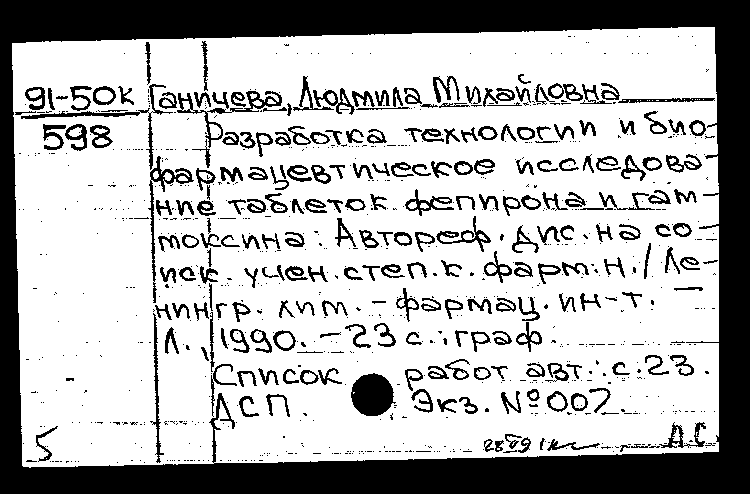 91-50к Ганичева, Людмила Михайловна
598 Разработка технологии и био-
фармацевтическое исследова-
ние таблеток фепирона и гам-
токсина: Автореф. дис. на со-
иск. учен. степ. к. фарм. н. / Ле-
нингр. хим. - фармац. ин-т. -
Л., 1990. - 23 с.: граф.
Список работ авт.: с. 23.
ДСП. Экз. № 007.
5 А С